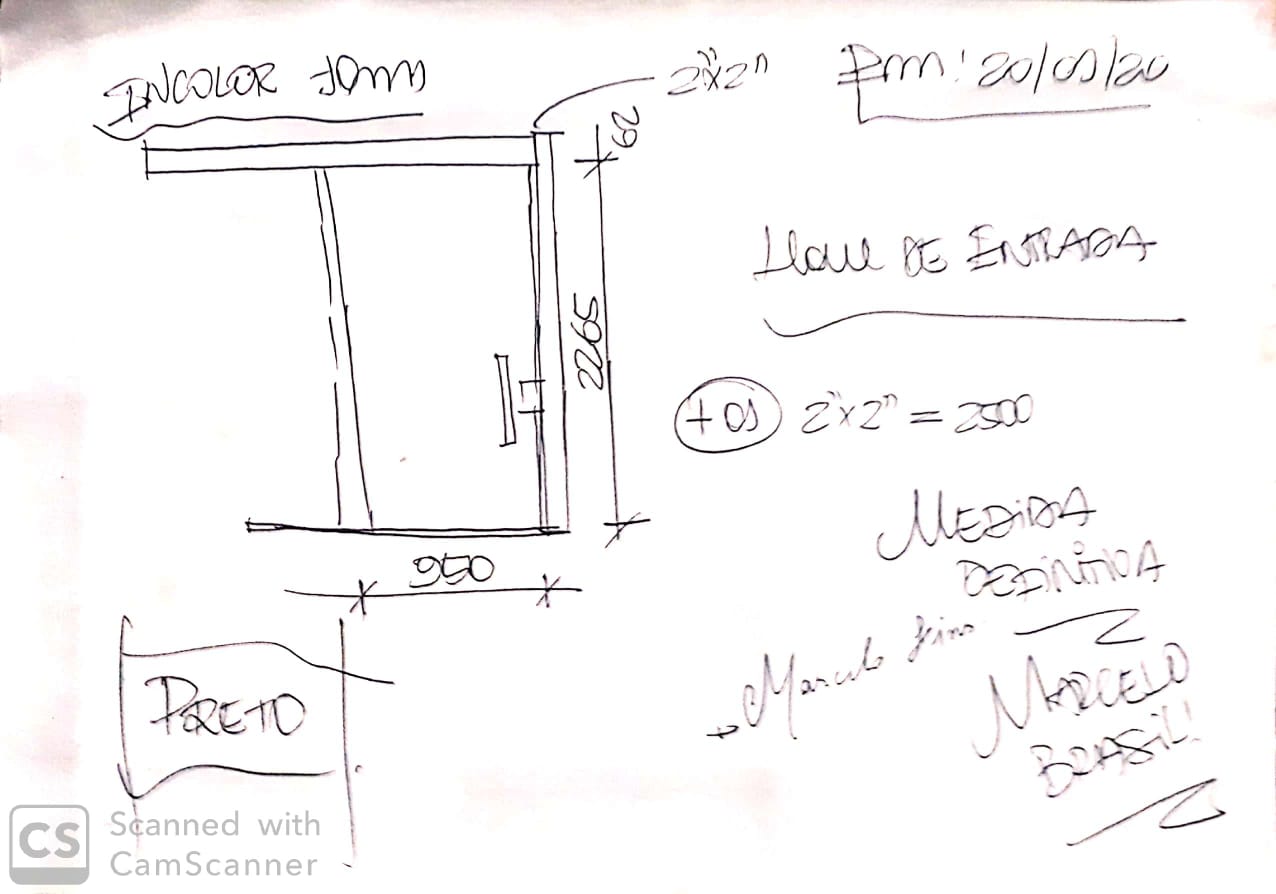 INCOLOR 10mm
2"x2"
Em: 20/01/20
62
Hall DE ENTRADA
2265
+ 01 2"x2" = 2500
MEDIDA
DEFINITIVA
950
Marcelo
MARCELO
BRASIL!
PRETO
CS Scanned with
CamScanner